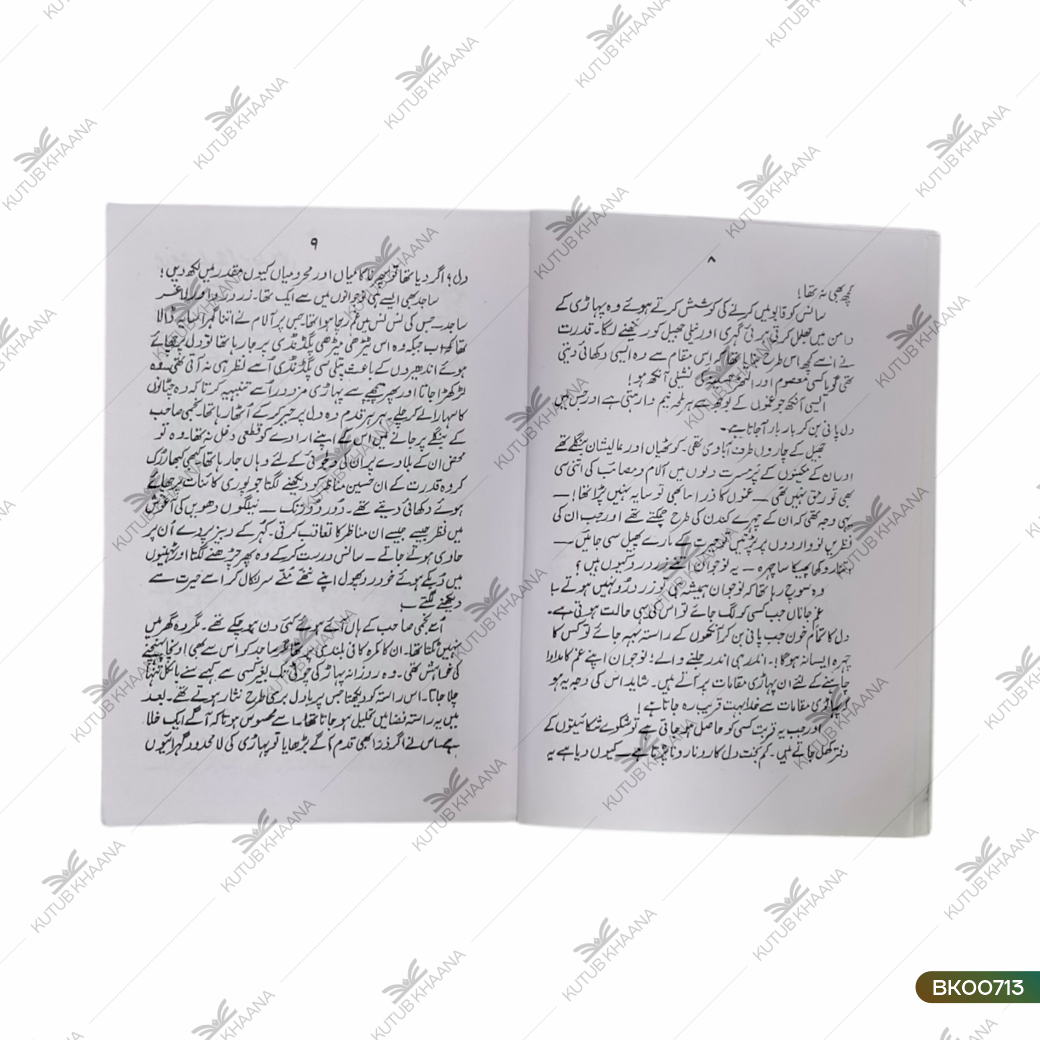 ۸
کچھ بھی نہ تھا!
سانس کو قابو میں کرنے کی کوشش کرتے ہوئے وہ پہاڑی کے
دامن میں جھلمل کرتی ہوئی گہری اور نیلی جھیل کو دیکھنے لگا۔ قدرت
نے اسے کچھ اس طرح بنایا تھا کہ اس مقام سے وہ ایسی دکھائی دیتی
تھی گویا کسی معصوم اور نشیلی آنکھ ہو!
ایسی آنکھ جو غموں کے بوجھ سے ہر لمحہ نیم وا رہتی ہے اور جس میں
دل پانی بن کر بار بار آ جاتا ہے۔
جھیل کے چاروں طرف آبادی تھی۔ کوٹھیاں اور عالیشان بنگلے تھے
اور ان کے مکینوں کے دلوں میں آلام و مصائب کی اتنی سی
بھی تو رمق نہیں تھی — غموں کا ذرا سا بھی تو سایہ نہیں پڑا تھا! —
یہی وجہ تھی کہ ان کے چہرے کندن کی طرح چمکتے تھے اور جب ان کی
نظریں نو واردوں پر پڑتیں تو حیرت کے مارے پھیل سی جاتیں —
پھیکا سا چہرہ — یہ نوجوان اتنے زرد رو کیوں ہیں؟
وہ سوچ رہا تھا کہ نوجوان ہمیشہ ہی تو زرد رو نہیں ہوتے
غم جاناں جب کسی کو لگ جائے تو اس کی یہی حالت ہوتی ہے۔
دل کا تمام خون جب پانی بن کر آنکھوں کے راستہ بہہ جائے تو کس کا
چہرہ ایسا نہ ہوگا! ۔ اندر ہی اندر جلنے والے؛ نوجوان اپنے غم کا مداوا
چاہنے کے لئے ان پہاڑی مقامات پر آتے ہیں۔ شاید اس کی وجہ یہ ہو
کہ پہاڑی مقامات سے خدا بہت قریب رہ جاتا ہے!
اور جب یہ قربت کسی کو حاصل ہو جاتی ہے تو شکوے شکائیتوں کے
دفتر کھل جاتے ہیں۔ کم بخت دل کا رونا رونا پڑتا ہے — کیوں دیا ہے یہ
۹
دل؟ اگر دیا تھا تو پھر ناکامیاں اور محرومیاں کیوں مقدر میں لکھ دیں!
ساجد بھی ایسے ہی نوجوانوں میں سے ایک تھا۔ زرد رو اور لاغر
ساجد — جس کی نس نس میں غم رچا ہوا تھا۔ جس پر آلام نے اتنا گہرا ڈالا
تھا کہ اب جبکہ وہ اس ٹیڑھی میڑھی پگڈنڈی پر جا رہا تھا تو دل پر چھائے
ہوئے اندھیروں کے باعث پتلی سی پگڈنڈی اُسے نظر ہی نہ آتی تھی۔ وہ
لڑکھڑا جاتا اور پھر پیچھے سے پہاڑی مزدور اُسے تنبیہہ کرتا کہ وہ چٹانوں
کا سہارا لے کر چلے۔ ہر ہر قدم وہ دل پر جبر کر کے اُٹھا رہا تھا۔ نجمی صاحب
کے بنگلے پر جانے میں اس کے اپنے ارادے کو قطعی دخل نہ تھا۔ وہ تو
محض ان کے بلاوے پر ان کی دلجوئی کے لئے وہاں جا رہا تھا کبھی کبھار رُک
کر وہ قدرت کے ان حسین مناظر کو دیکھنے لگتا جو پوری کائنات پر چھائے
ہوئے دکھائی دیتے تھے۔ دُور دُور تک — نیلگوں دھویں کی آغوش
میں نظر جیسے جیسے ان مناظر کا تعاقب کرتی۔ کُہر کے دبیز پردے اُن پر
حاوی ہوتے جاتے۔ سانس درست کر کے وہ پھر چڑھنے لگتا اور ٹہنیوں
میں دُبکے ہوئے خود رو پھول اپنے ننھے ننھے سر نکال کر اسے حیرت سے
دیکھنے لگتے۔
اُسے نجمی صاحب کے ہاں آئے ہوئے کئی دن ہو چکے تھے۔ مگر وہ گھر میں
نہیں ٹکتا تھا۔ ان کا مکان کافی بلندی پر تھا مگر ساجد کو اس سے بھی اونچا پہنچنے
کی خواہش تھی۔ وہ روزانہ پہاڑ کی چوٹی تک بغیر کسی سے کہے سنے بالکل تنہا
چلا جاتا۔ اس راستہ کو دیکھتا جس پر بادل بری طرح نثار ہوتے تھے۔ بعد
میں یہ راستہ فضا میں تحلیل ہو جاتا تھا۔ اسے محسوس ہوتا کہ آگے ایک خلا
ہے۔ اس نے اگر ذرا بھی قدم آگے بڑھایا تو پہاڑی کی لا محدود گہرائیوں
KUTUB KHAANA
BK00713